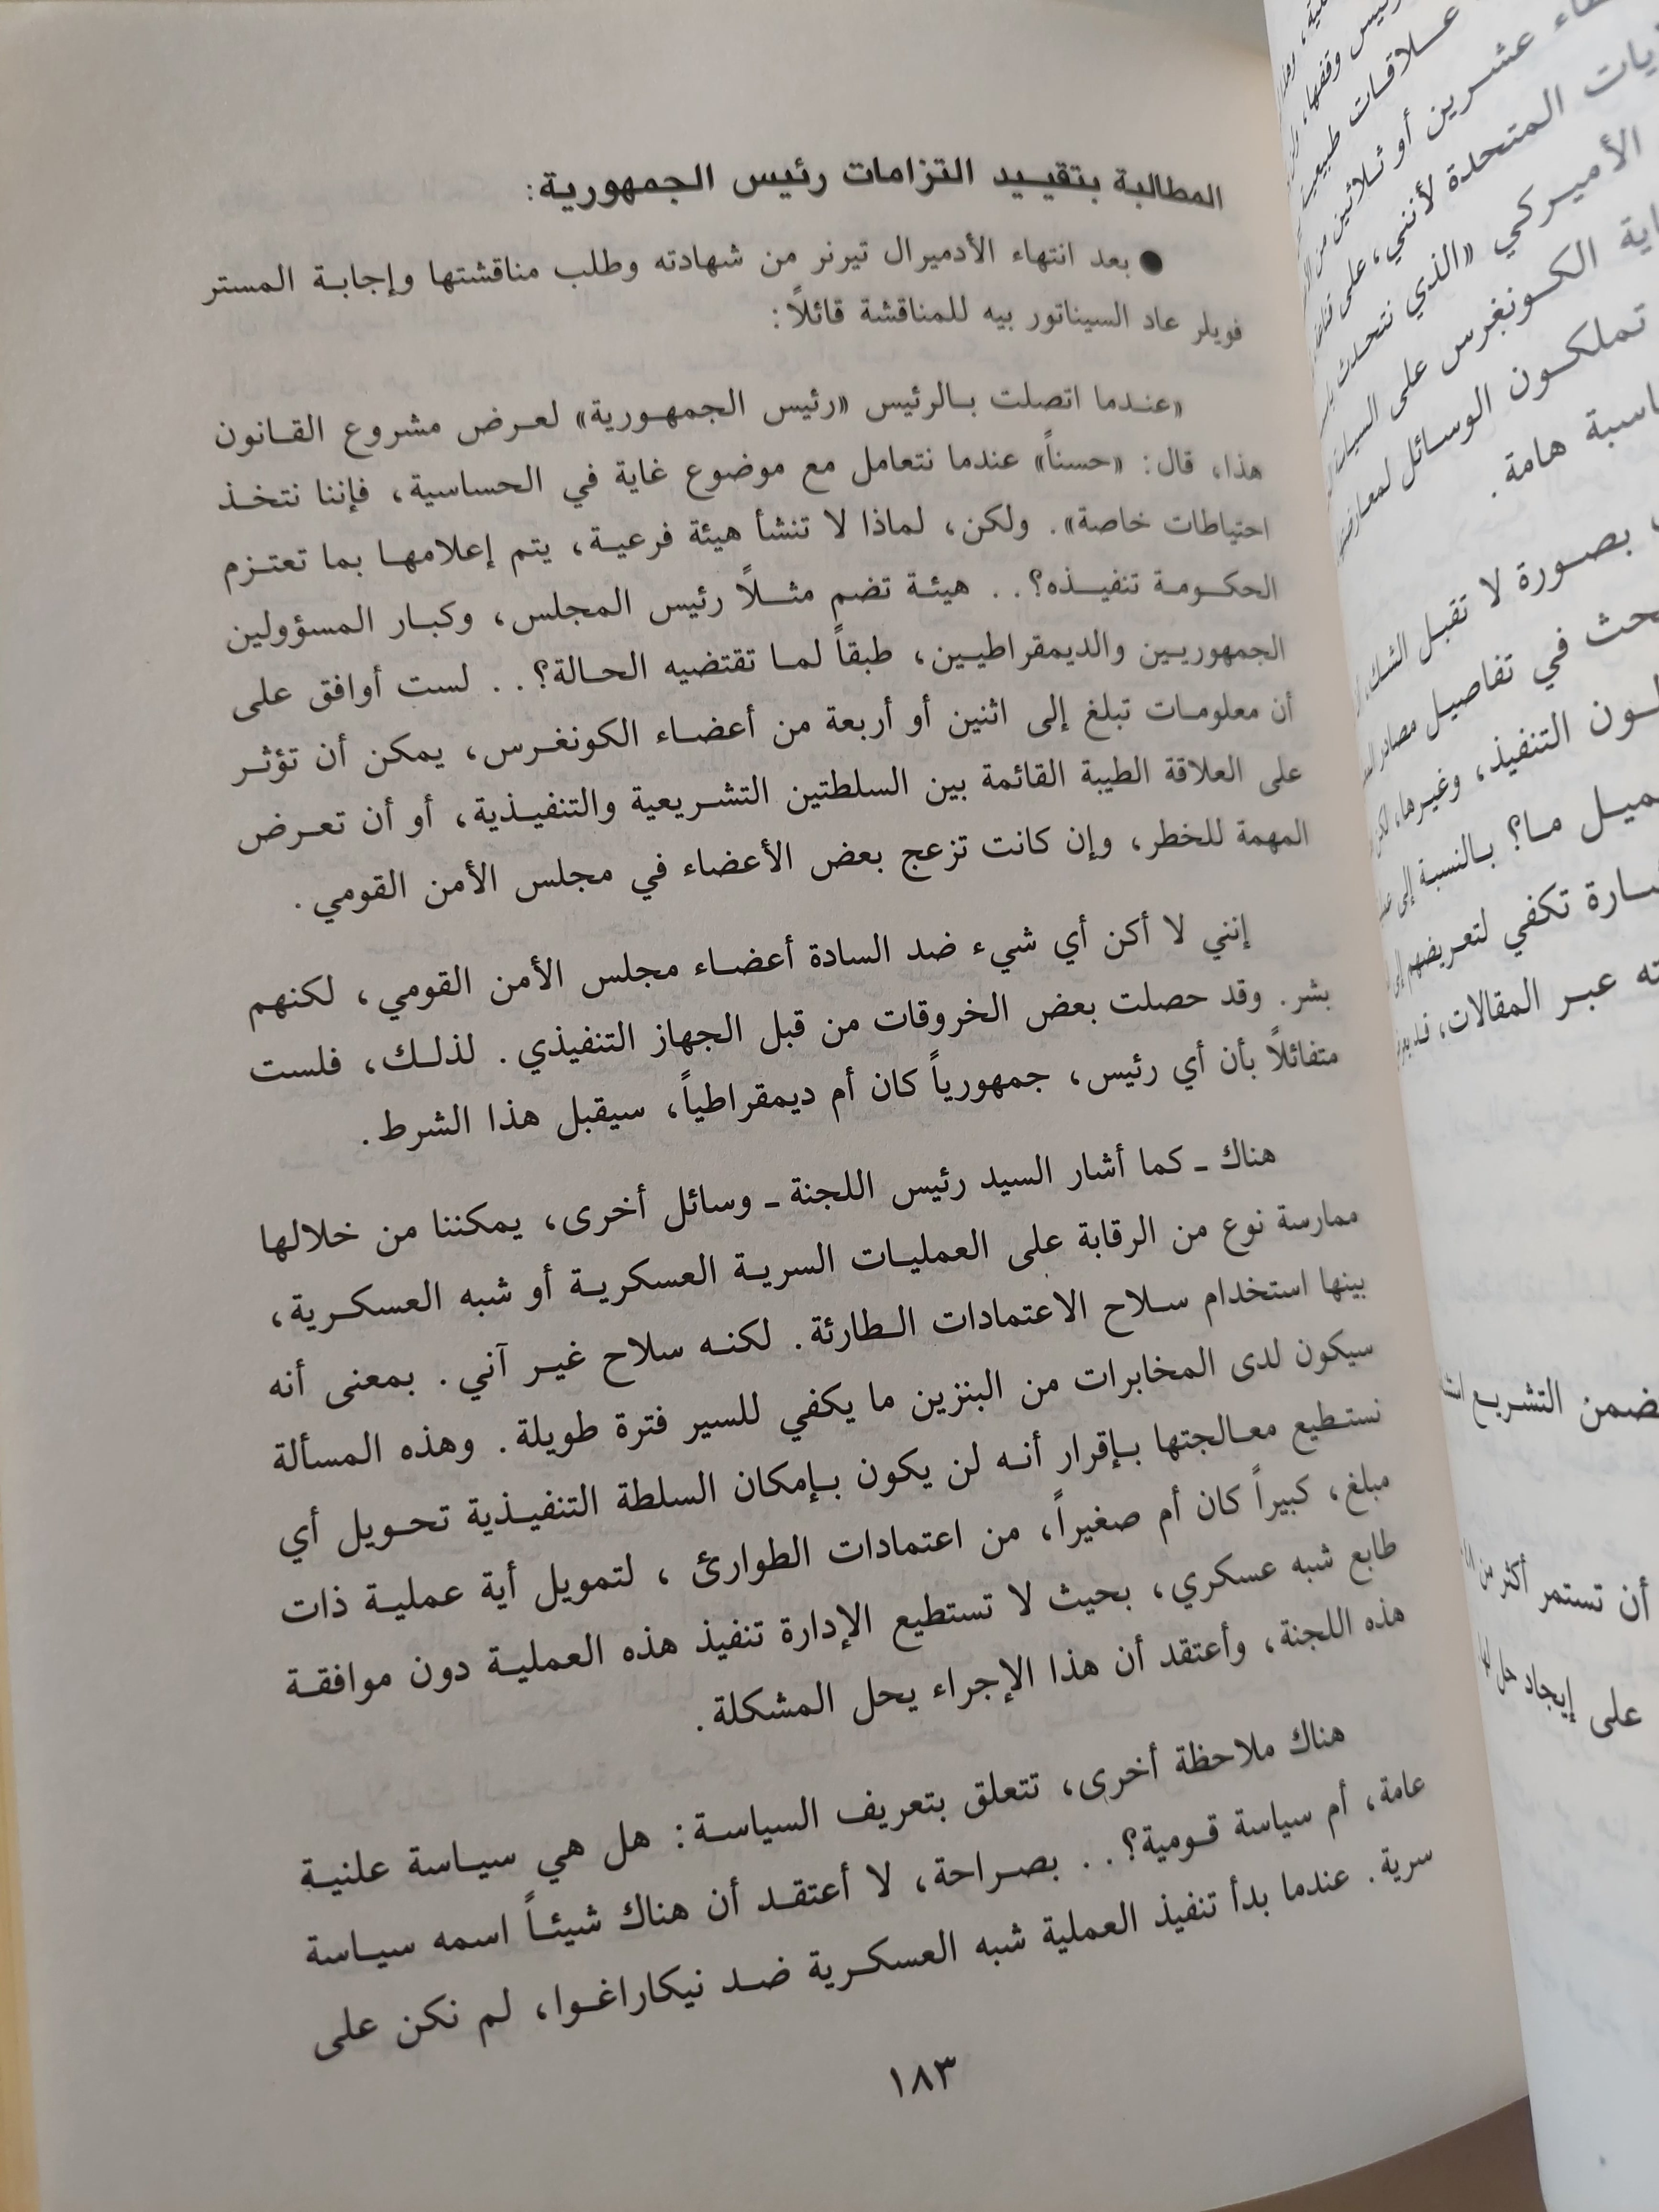 المطالبة بتقييد التزامات رئيس الجمهورية:
● بعد انتهاء الأدميرال تيرنر من شهادته وطلب مناقشتها وإجابة المستر
فويلر عاد السيناتور بيه للمناقشة قائلاً:
«عندما اتصلت بالرئيس «رئيس الجمهورية» لعرض مشروع القانون
هذا، قال: «حسناً» عندما نتعامل مع موضوع غاية في الحساسية، فإننا نتخذ
احتياطات خاصة». ولكن، لماذا لا تنشأ هيئة فرعية، يتم إعلامها بما تعتزم
الحكومة تنفيذه؟.. هيئة تضم مثلاً رئيس المجلس، وكبار المسؤولين
الجمهوريين والديمقراطيين، طبقاً لما تقتضيه الحالة؟.. لست أوافق على
أن معلومات تبلغ إلى اثنين أو أربعة من أعضاء الكونغرس، يمكن أن تؤثر
على العلاقة الطيبة القائمة بين السلطتين التشريعية والتنفيذية، أو أن تعرض
المهمة للخطر، وإن كانت تزعج بعض الأعضاء في مجلس الأمن القومي.
إنني لا أكن أي شيء ضد السادة أعضاء مجلس الأمن القومي، لكنهم
بشر. وقد حصلت بعض الخروقات من قبل الجهاز التنفيذي. لذلك، فلست
متفائلاً بأن أي رئيس، جمهورياً كان أم ديمقراطياً، سيقبل هذا الشرط.
هناك - كما أشار السيد رئيس اللجنة - وسائل أخرى، يمكننا من خلالها
ممارسة نوع من الرقابة على العمليات السرية العسكرية أو شبه العسكرية،
بينها استخدام سلاح الاعتمادات الطارئة. لكنه سلاح غير آني. بمعنى أنه
سيكون لدى المخابرات من البنزين ما يكفي للسير فترة طويلة. وهذه المسألة
نستطيع معالجتها بإقرار أنه لن يكون بإمكان السلطة التنفيذية تحويل أي
مبلغ، كبيراً كان أم صغيراً، من اعتمادات الطوارئ، لتمويل أية عملية ذات
طابع شبه عسكري، بحيث لا تستطيع الإدارة تنفيذ هذه العملية دون موافقة
هذه اللجنة، وأعتقد أن هذا الإجراء يحل المشكلة.
هناك ملاحظة أخرى، تتعلق بتعريف السياسة: هل هي سياسة علنية
عامة، أم سياسة قومية؟.. بصراحة، لا أعتقد أن هناك شيئاً اسمه سياسة
سرية. عندما بدأ تنفيذ العملية شبه العسكرية ضد نيكاراغوا، لم نكن على
١٨٣
علاقات
عشرين أو ثلاثين من
المتحدة لأنني، على
الأميركي «الذي نتحدث
الكونغرس على
تملكون الوسائل
هامة.
بصورة لا تقبل الشك،
في تفاصيل مصادر
التنفيذ، وغيرها،
ما؟ بالنسبة إلى
تكفي لتعريضهم
عبر المقالات،
التشريع
أن تستمر أكثر من
على إيجاد حل